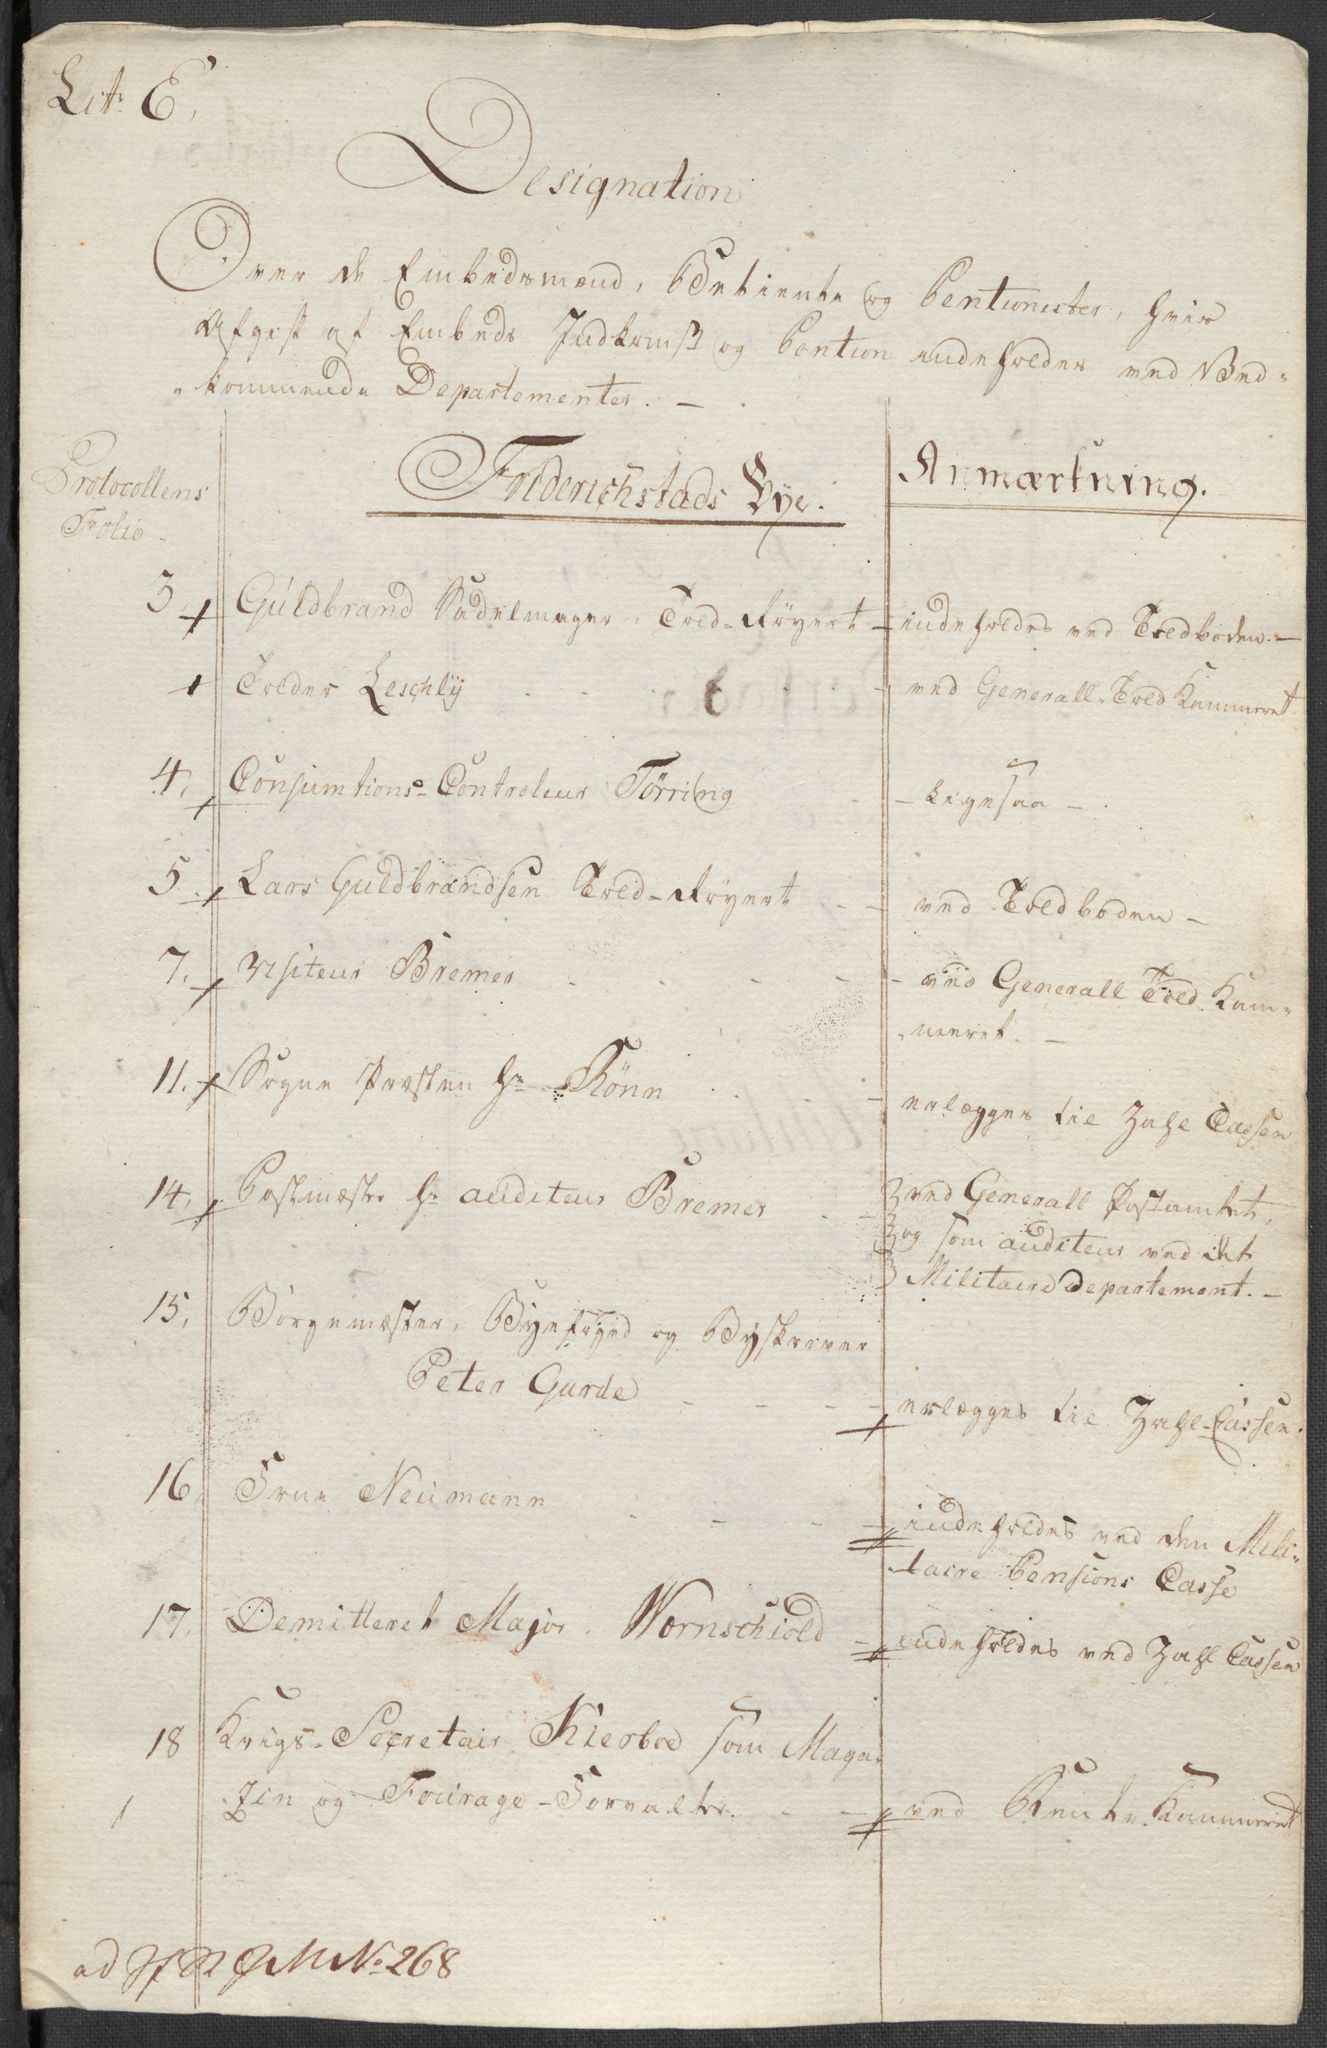 Lit: E,
Designation
Over de Embedsmænd, Betiente og Pentionister, hvis
Afgift af Embeds Indkomst og Pention indeholdes ved Ved-
kommende Departementer. -
Protocollens
Folio
Friderichstads Bye.
Anmærkning.
3. Guldbrand Sadelmager, Told-Røyert - indeholdes ved Toldboden. -
Tolder Leschly - ved Generall-Told Kammeret
4. Consumtions-Controleur Törring - ligesaa -
5. Lars Guldbrandsen Told-Røyert - ved Toldboden -
7. Visiteur Bremer - ved Generall Told Kam-
meret. -
11. Sogne Præsten Hr Rönn - erlægges til Zahl Cassen
14. Postmester Hr auditeur Bremer - ved Generall Postamtet,
og som auditeur ved det
Militaire Departement. -
15. Borgemester, Byefoged og Byskriver
Peter Gurde - erlægges til Zahl-Cassen.
16. Frue Neumann - indeholdes ved den Mili-
taire Pensions Casse
17. Demitteret Major. Wernschiold - indeholdes ved Zahl Cassen
18 Krigs-Secretair Kierboe som Maga-
zin og Fourage-Forvalter. - ved Rente Kammeret
ad No 268